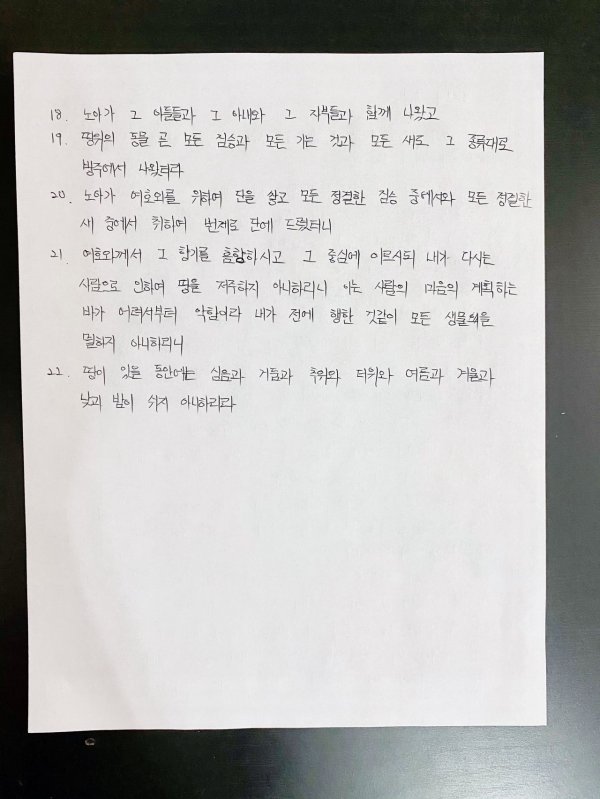 18. 노아가 그 아들들과 그 아내와 그 자부들과 함께 나왔고
19. 땅위의 동물 곧 모든 짐승과 모든 기는 것과 모든 새도 그 종류대로
방주에서 나왔더라
20. 노아가 여호와를 위하여 단을 쌓고 모든 정결한 짐승 중에서와 모든 정결한
새 중에서 취하여 번제로 단에 드렸더니
21. 여호와께서 그 향기를 흠향하시고 그 중심에 이르시되 내가 다시는
사람으로 인하여 땅을 저주하지 아니하리니 이는 사람의 마음의 계획하는
바가 어려서부터 악함이라 내가 전에 행한 것같이 모든 생물을
멸하지 아니하리니
22. 땅이 있을 동안에는 심음과 거둠과 추위와 더위와 여름과 겨울과
낮과 밤이 쉬지 아니하리라